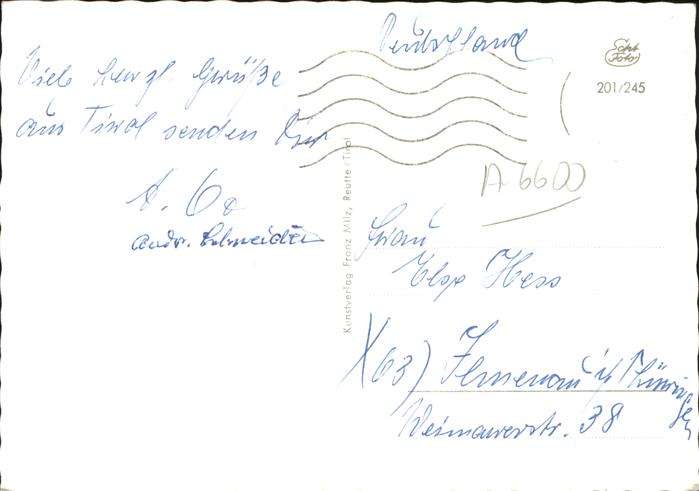 Deutschland
Viele herzl. Grüße
aus Tirol senden Dir
Andr. Schneider
Echt
Foto
201/245
A 6600
Kunstverlag Franz Milz, Reutte/Tirol
Frau
Elga Hess
X (63) Ilmenau i/ Thüringen
Weimarerstr. 38